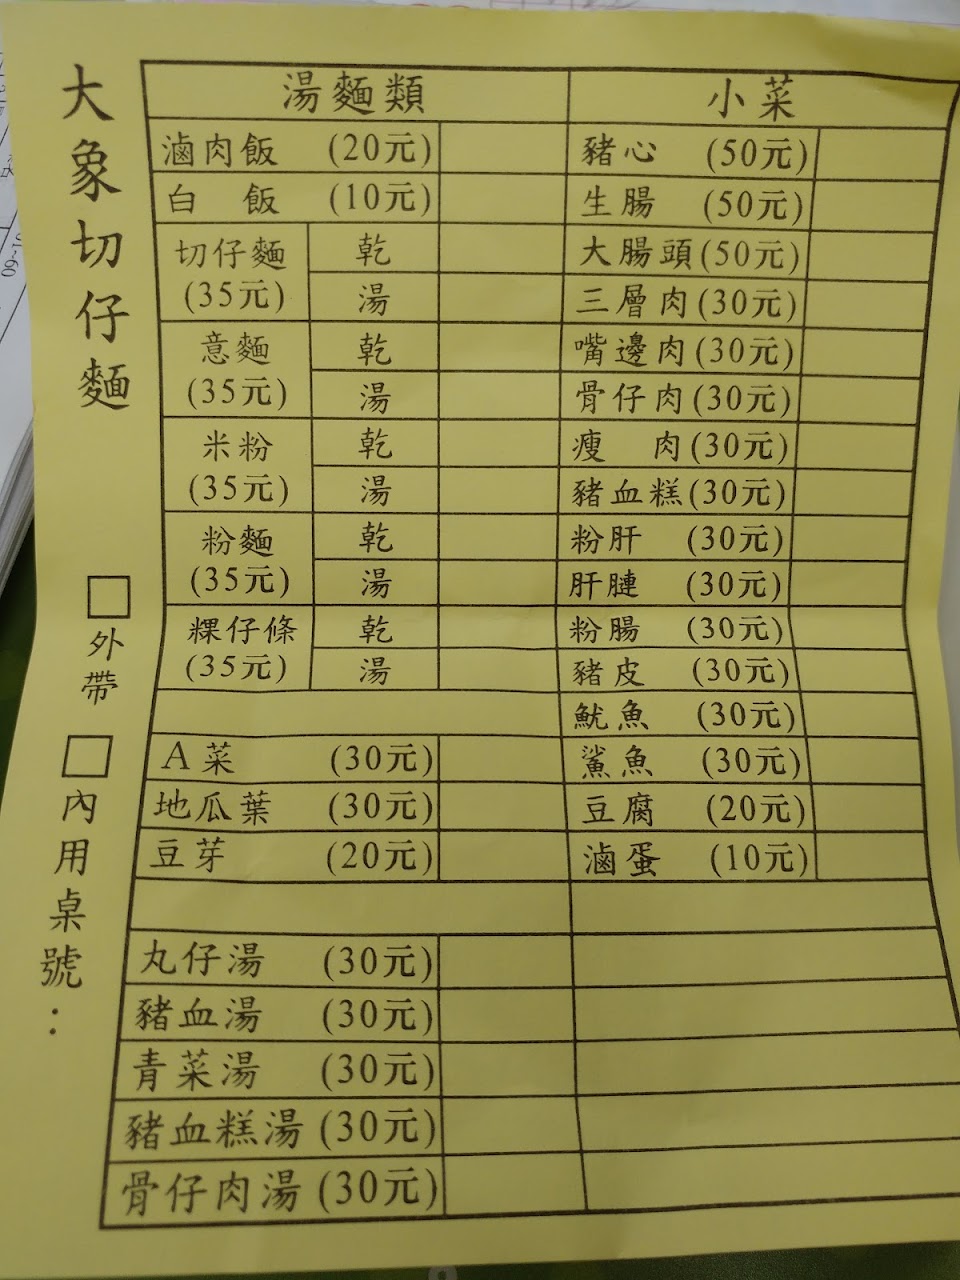 大象切仔麵
□外帶 □內用桌號：
湯麵類
滷肉飯 (20元)
白 飯 (10元)
切仔麵 (35元) 乾 湯
意麵 (35元) 乾 湯
米粉 (35元) 乾 湯
粉麵 (35元) 乾 湯
粿仔條 (35元) 乾 湯
A菜 (30元)
地瓜葉 (30元)
豆芽 (20元)
丸仔湯 (30元)
豬血湯 (30元)
青菜湯 (30元)
豬血糕湯 (30元)
骨仔肉湯 (30元)
小菜
豬心 (50元)
生腸 (50元)
大腸頭 (50元)
三層肉 (30元)
嘴邊肉 (30元)
骨仔肉 (30元)
瘦 肉 (30元)
豬血糕 (30元)
粉肝 (30元)
肝膤 (30元)
粉腸 (30元)
豬皮 (30元)
魷魚 (30元)
鯊魚 (30元)
豆腐 (20元)
滷蛋 (10元)